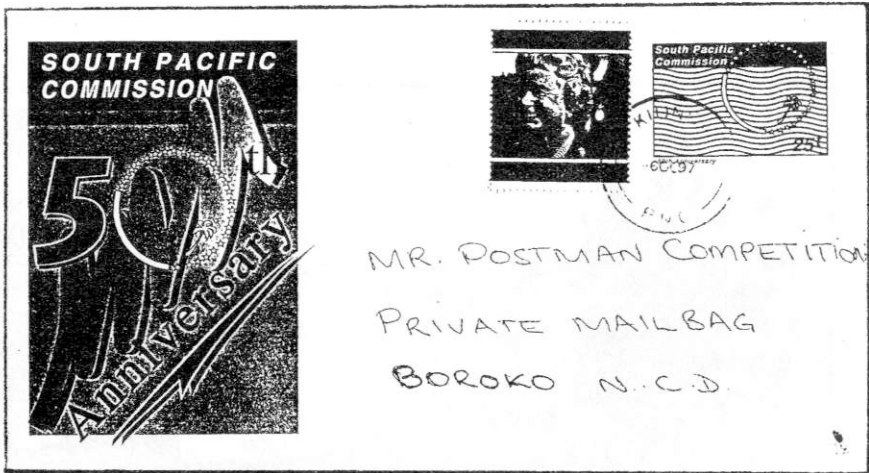 SOUTH PACIFIC
COMMISSION
50th
Anniversary
South Pacific
Commission
25t
PNG
MR. POSTMAN COMPETITION
PRIVATE MAILBAG
BOROKO N.C.D.